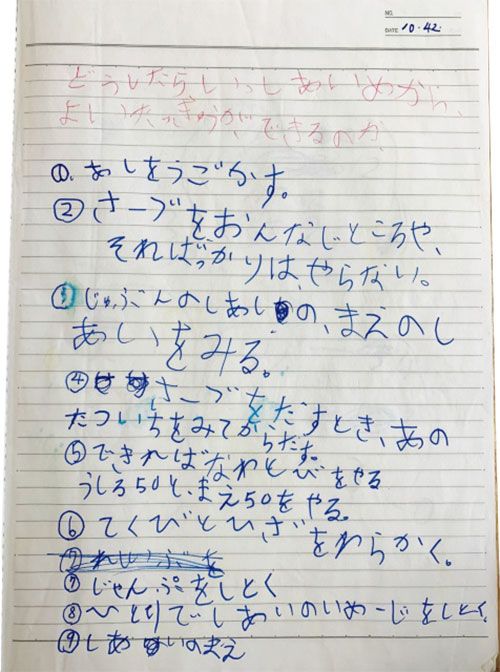 NO.
DATE 10・42
どうしたら、しっしあいめから、
よいたっきゅうが、できるのか、
①、あしをうごかす。
②さーブをおんなじところや、
そればっかりは、やらない。
③じゅぶんのしあいの、まえのし
あいをみる。
④さーブをだすとき、あの
たついちをみてからだす。
⑤できればなわとびをやる
うしろ50と、まえ50をやる。
⑥てくびとひざをわらかく。
⑦じゃんぷをしとく
⑧ヘとりでしあいのいめーじをしとく、
⑨しあいのまえ